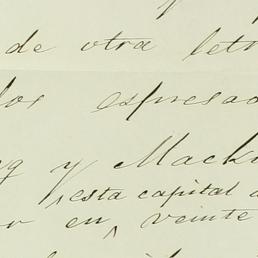 de otra letr
los espresad
g y Macki
esta capital
en veinte